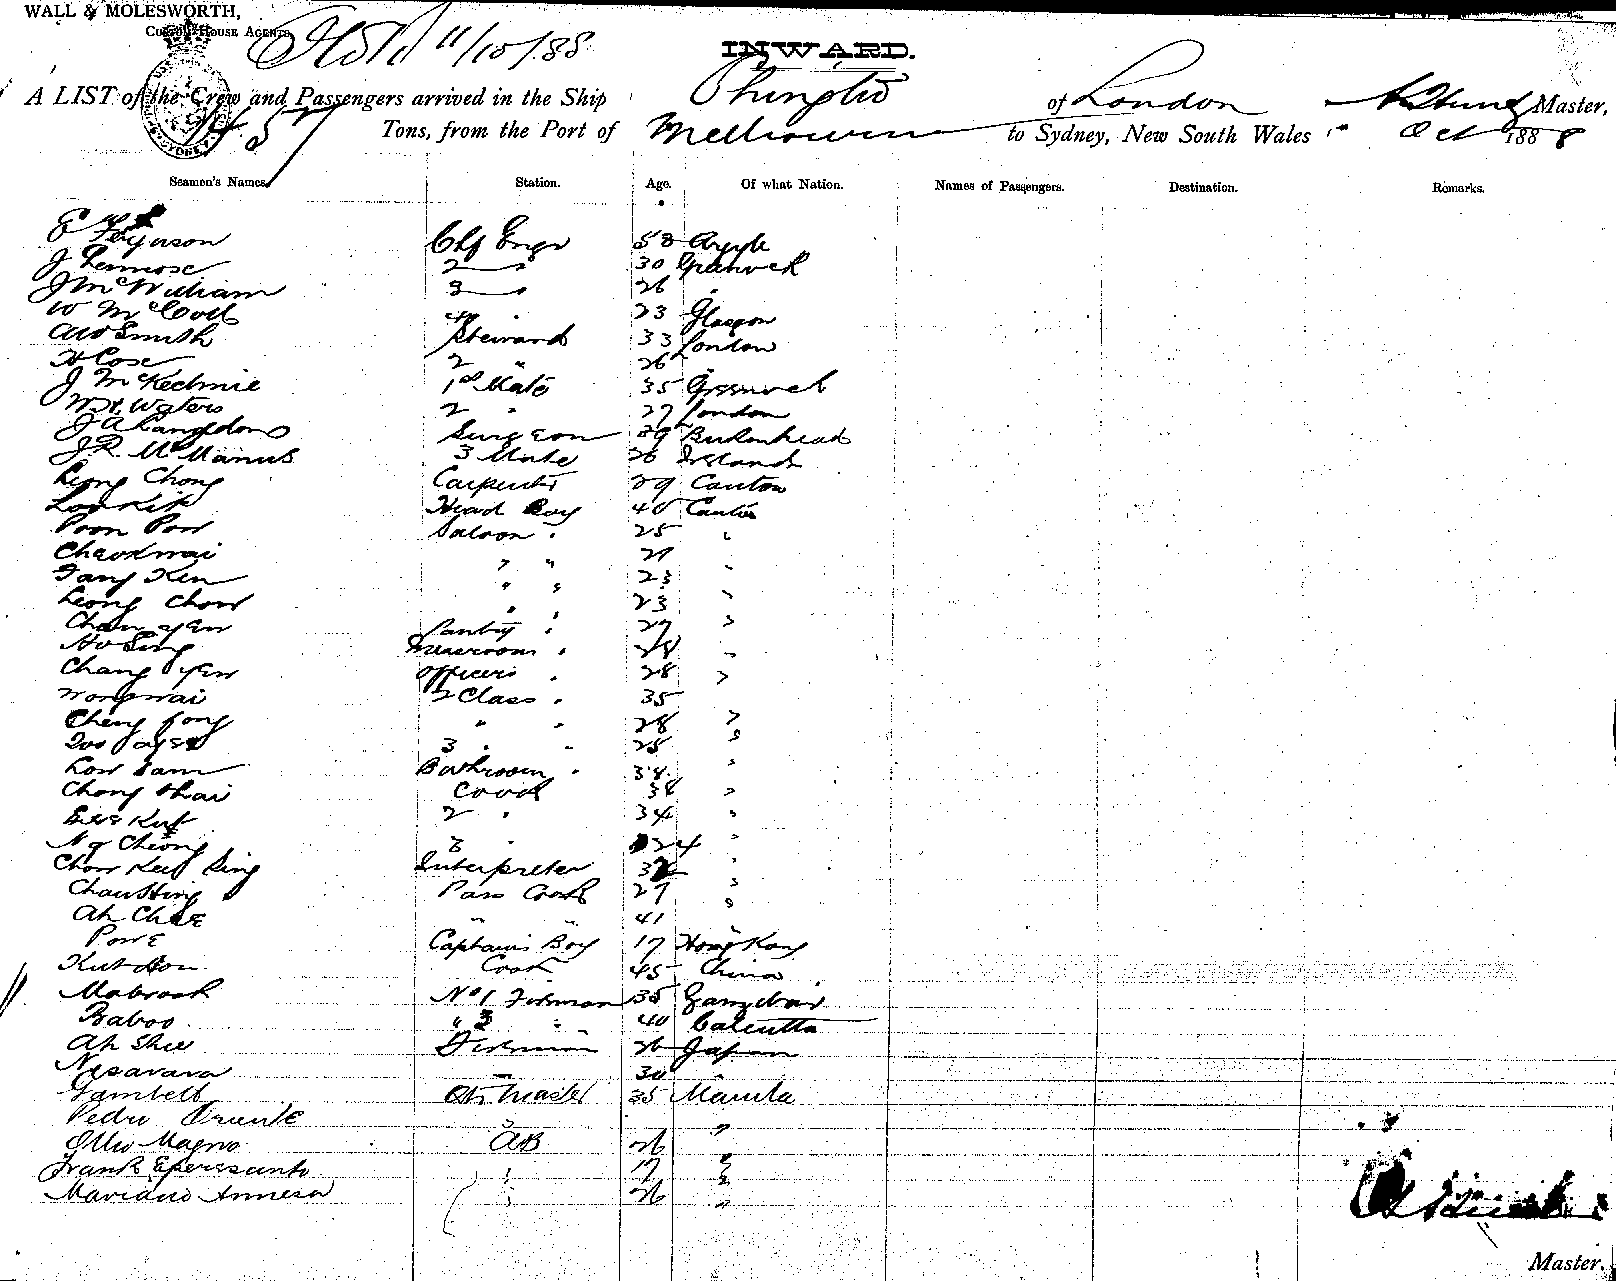 WALL & MOLESWORTH,
CUSTOM HOUSE AGENTS
11/10/88
INWARD.
A LIST of the Crew and Passengers arrived in the Ship Chingtu of London Master,
Tons, from the Port of Melbourne to Sydney, New South Wales Oct 1888
Seamen's Names. Station. Age. Of what Nation. Names of Passengers. Destination. Remarks.
E Ferguson Chf Engr 58 Argyle
J Lennose 2 " 30 Greenock
J McWilliam 3 " 26 "
W McColl 4 " 23 Glasgow
AW Smith Steward 33 London
H Cose 2 " 26 "
J McKechnie 1st Mate 35 Greenock
WH Waters 2 " 27 London
JA Langdon Surgeon 39 Birkenhead
J.R. McManus 3 Mate 26 Ireland
Leong Chong Carpenter 29 Canton
Loo Kit Head Boy 40 Canton
Poon Pow Saloon " 25 "
Cheokwai " " 27 "
Fang Ken " " 23 "
Leong Chow " " 23 "
Chan Yew Pantry " 27 "
Ho Sing Messroom " 28 "
Chang Yew Officers " 28 "
Wongwai 2 Class " 35
Cheng fong " " 28 "
3 " 25 "
Low Sam Bathroom " 38 "
Chong Thai Cook 38 "
2 " 34 "
Ng Cheong 3 " 24 "
Chow Sing Interpreter 32 "
Chau Hing Pass Cook 27 "
Ah Chee " " 41 "
Powe Captains Boy 17 Hong Kong
Cook 45 China
Mabrook No 1 Fireman 35 Zanzebar
Baboo " 2 " 40 Calcutta
Ah Shee Fireman 26 Japan
Nesavara " 30
Lambell Qtr Master 35 Manila
Pedro Oriente " "
Magno AB 26 "
Frank Eperssanto " 17 "
Mariano Annesa " 26 "
Master.